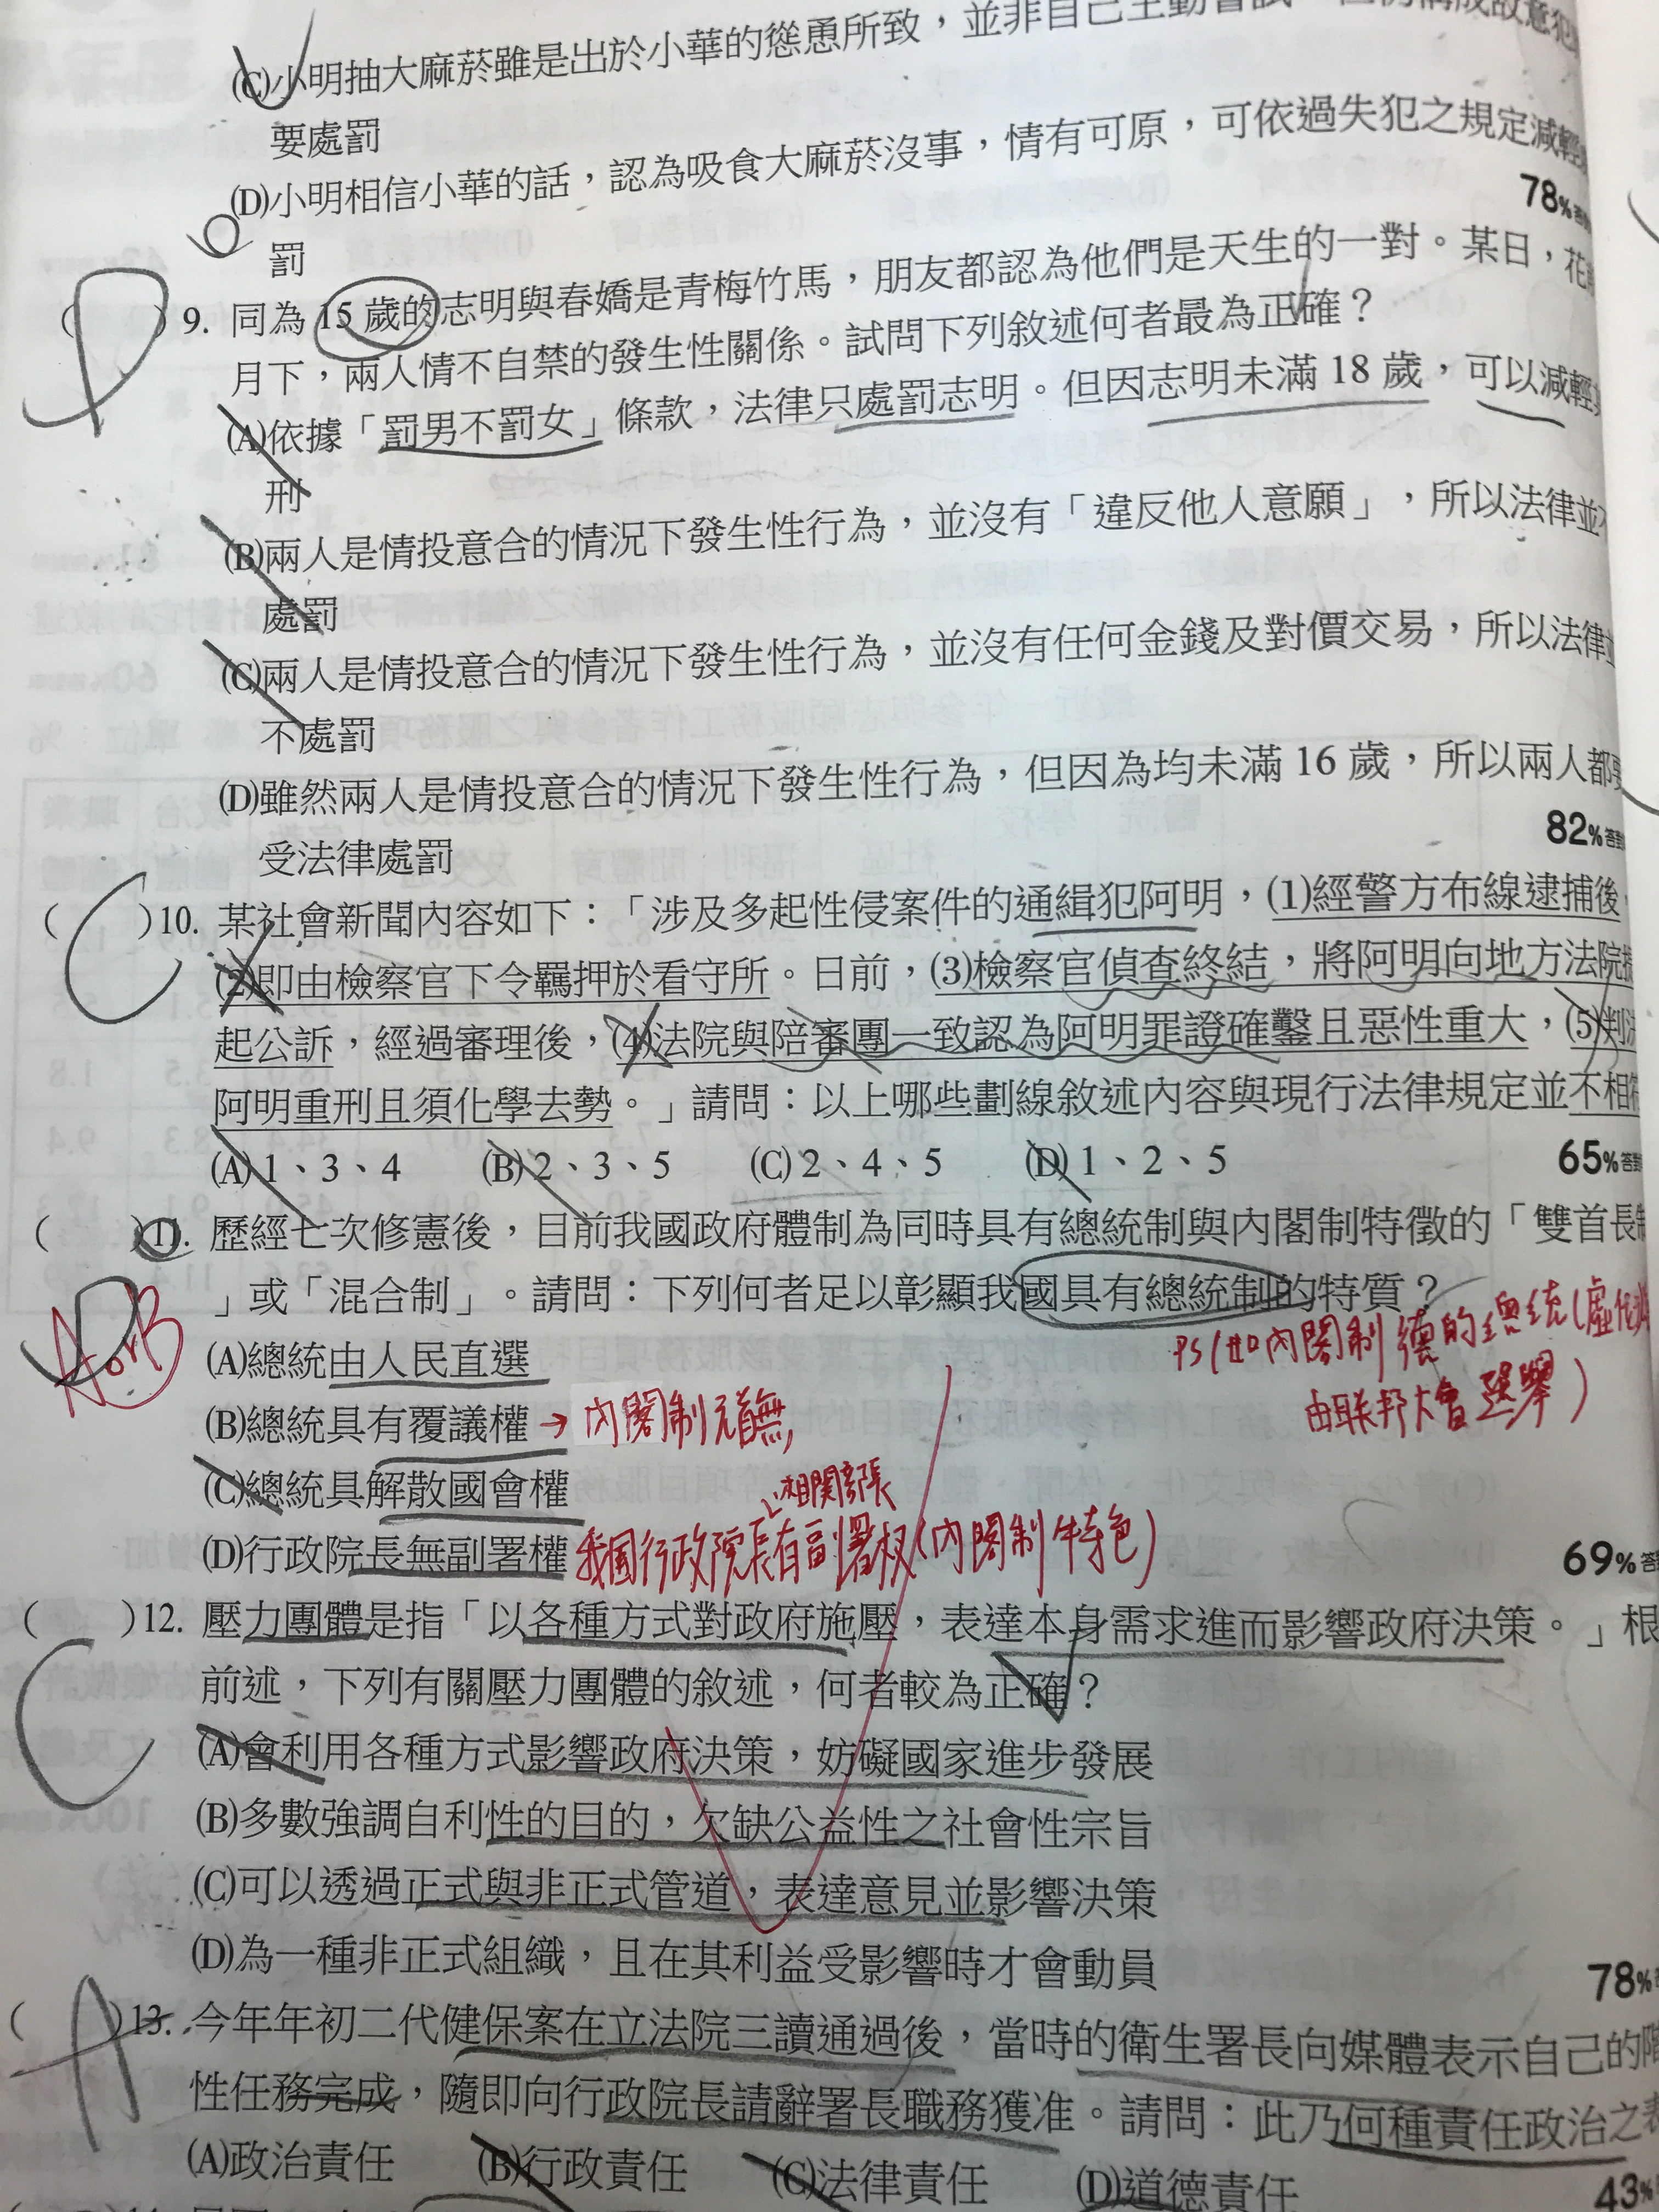 (C)小明抽大麻菸雖是出於小華的慫恿所致，並非自己主動
要處罰
(D)小明相信小華的話，認為吸食大麻菸沒事，情有可原，可依過失犯之規定減輕
罰
78%
D
( )9. 同為15歲的志明與春嬌是青梅竹馬，朋友都認為他們是天生的一對。某日，花
月下，兩人情不自禁的發生性關係。試問下列敘述何者最為正確？
(A)依據「罰男不罰女」條款，法律只處罰志明。但因志明未滿18歲，可以減輕
刑
(B)兩人是情投意合的情況下發生性行為，並沒有「違反他人意願」，所以法律並不
處罰
(C)兩人是情投意合的情況下發生性行為，並沒有任何金錢及對價交易，所以法律並
不處罰
(D)雖然兩人是情投意合的情況下發生性行為，但因為均未滿16歲，所以兩人都要
受法律處罰
82%
C
( )10. 某社會新聞內容如下：「涉及多起性侵案件的通緝犯阿明，(1)經警方布線逮捕後，
(2)即由檢察官下令羈押於看守所。日前，(3)檢察官偵查終結，將阿明向地方法院提
起公訴，經過審理後，(4)法院與陪審團一致認為阿明罪證確鑿且惡性重大，(5)判決
阿明重刑且須化學去勢。」請問：以上哪些劃線敘述內容與現行法律規定並不相符
(A) 1、3、4 (B) 2、3、5 (C) 2、4、5 (D) 1、2、5
65%
( )11. 歷經七次修憲後，目前我國政府體制為同時具有總統制與內閣制特徵的「雙首長制
」或「混合制」。請問：下列何者足以彰顯我國具有總統制的特質？
D
AorB
PS(如內閣制德的總統(虛位
由联邦大會選舉)
(A)總統由人民直選
(B)總統具有覆議權→內閣制元首無
(C)總統具解散國會權
相關部長
(D)行政院長無副署權 我國行政院長有副署权(內閣制特色)
69%
C
( )12. 壓力團體是指「以各種方式對政府施壓，表達本身需求進而影響政府決策。」根
前述，下列有關壓力團體的敘述，何者較為正確？
(A)會利用各種方式影響政府決策，妨礙國家進步發展
(B)多數強調自利性的目的，欠缺公益性之社會性宗旨
(C)可以透過正式與非正式管道，表達意見並影響決策
(D)為一種非正式組織，且在其利益受影響時才會動員
78%
A
( )13. 今年年初二代健保案在立法院三讀通過後，當時的衛生署長向媒體表示自己的階
性任務完成，隨即向行政院長請辭署長職務獲准。請問：此乃何種責任政治之表
(A)政治責任 (B)行政責任 (C)法律責任 (D)道德責任
43%